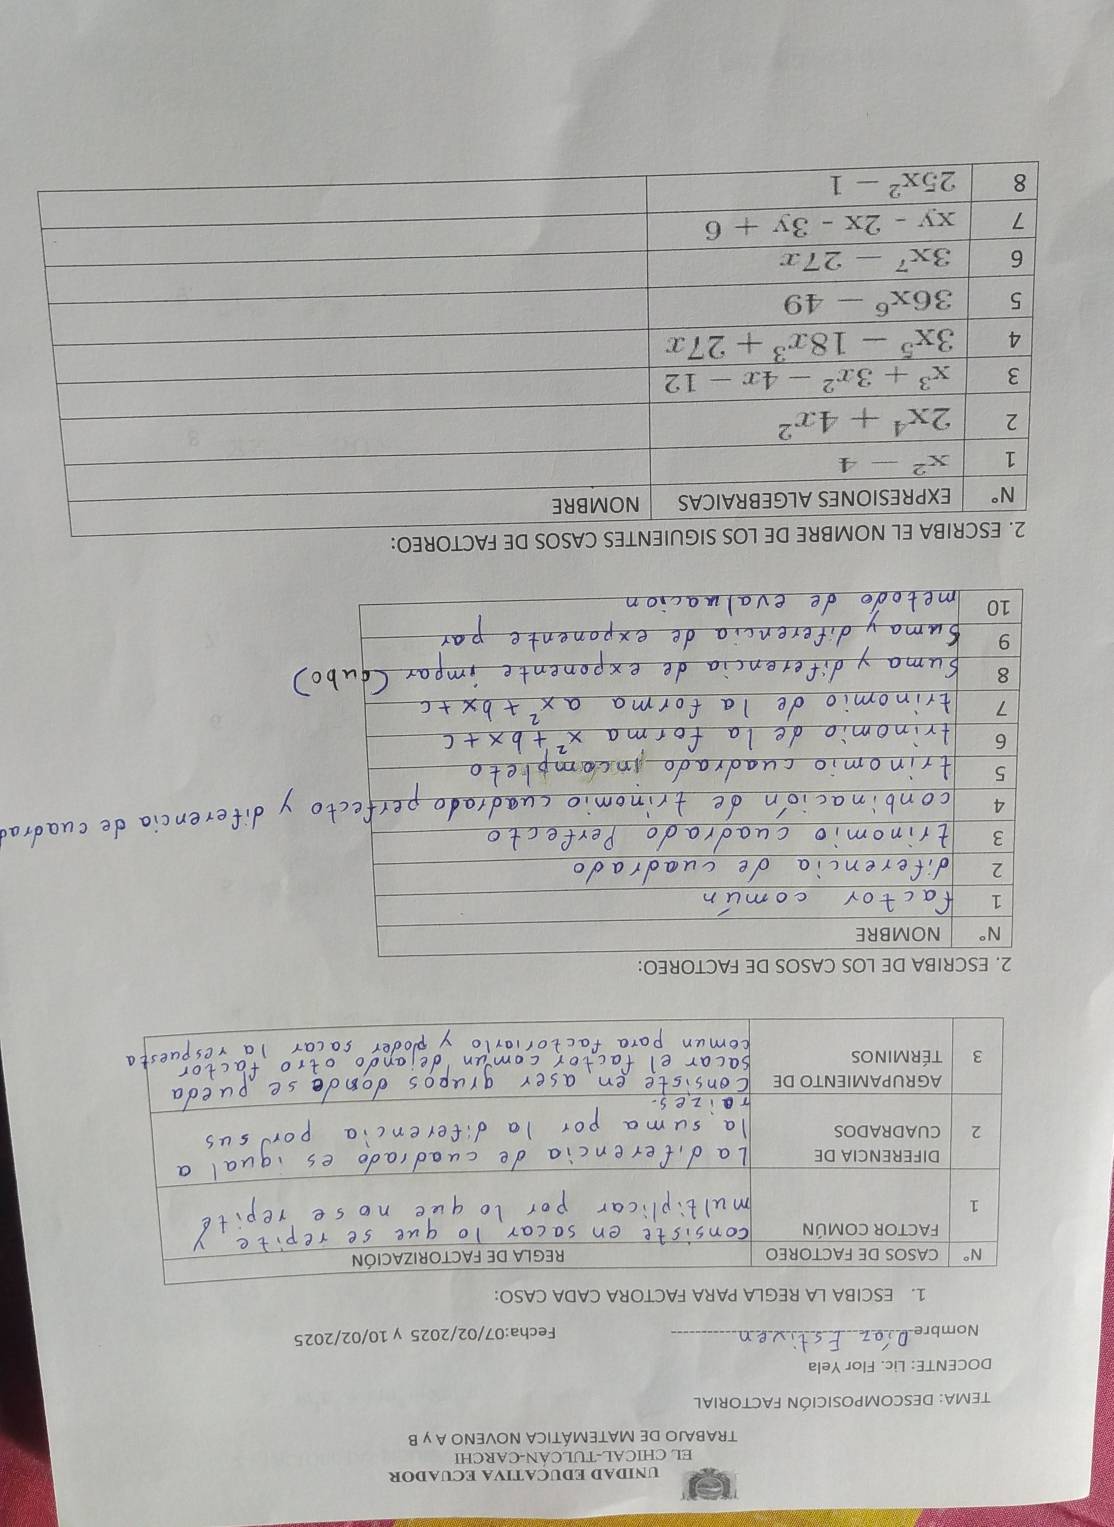 UNIDAD EDUCATIVA ECUADOR
EL CHICAL-TULCÁN-CARCHI
TRABAJO DE MATEMÁTICA NOVENO A y B
TEMA: DESCOMPOSICIÓN FACTORIAL
DOCENTE: Lic. Flor Yela
Nombre Díaz Estiven Fecha:07/02/2025 y 10/02/2025
1. ESCIBA LA REGLA PARA FACTORA CADA CASO:
N° CASOS DE FACTOREO REGLA DE FACTORIZACIÓN
1 FACTOR COMÚN consiste en sacar lo que se repite y
multiplicar por lo que no se repite
2 DIFERENCIA DE CUADRADOS La diferencia de cuadrado es igual a
la suma por la diferencia por sus
raizes.
3 AGRUPAMIENTO DE TÉRMINOS Consiste en aser grupos donde se pueda
sacar el factor común dejando otro factor
comun para factoriarlo y poder sacar la respuesta
2. ESCRIBA DE LOS CASOS DE FACTOREO:
N° NOMBRE
1 factor común
2 diferencia de cuadrado
3 trinomio cuadrado Perfecto
4 conbinación de trinomio cuadrado perfecto y diferencia de cuadrad
5 trinomio cuadrado incompleto
6 trinomio de la forma x² + bx + c
7 trinomio de la forma ax² + bx + c
8 Suma y diferencia de exponente impar (cubo)
9 Suma y diferencia de exponente par
10 metodo de evaluacion
2. ESCRIBA EL NOMBRE DE LOS SIGUIENTES CASOS DE FACTOREO:
N° EXPRESIONES ALGEBRAICAS NOMBRE
1 x² − 4
2 2x⁴ + 4x²
3 x³ + 3x² − 4x − 12
4 3x⁵ − 18x³ + 27x
5 36x⁶ − 49
6 3x⁷ − 27x
7 xy - 2x - 3y + 6
8 25x² − 1